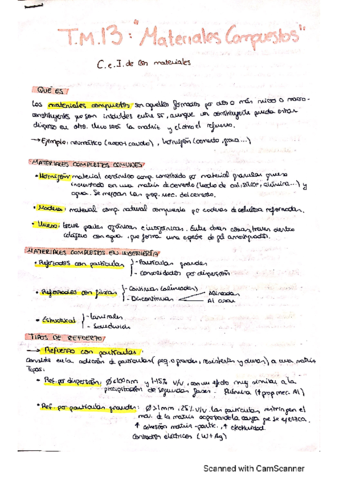 T.M.13: "Materiales Compuestos"
C. e I. de los materiales
QUÉ ES
Los materiales compuestos son aquellos formados por dos o más micro o macro-
constituyentes que son insolubles entre sí, aunque un constituyente puede estar
disperso en otro. Uno será la matriz y el otro el refuerzo.
→ Ejemplo: neumático (caucho), hormigón (cemento, ...)
MATERIALES COMPUESTOS COMUNES
• Hormigón: material cerámico comp. constituido por material granular grueso
en una matriz de cemento
agua. Se mejoran las prop. mec. del cemento.
• Madera: material comp. natural compuesto por cadenas de celulosa reforzadas.
• Hueso: tiene partes orgánicas e inorgánicas. Entre
colágeno con agua, que forma una especie de gel
MATERIALES COMPUESTOS EN INGENIERÍA
• Reforzados con partículas
- Partículas grandes
- Consolidados por dispersión
• Reforzados con fibras
- Continuas (alineadas)
- Discontinuas
Alineadas
Al azar
• Estructural
- Laminares
- Sandwich
TIPOS DE REFUERZO
→ Refuerzo con partículas
Consiste en la adición de partículas (peq. o grandes, resistentes y duras) a una matriz
Tipos:
• Ref. por dispersión: Ø<100nm y 1-15% v/v, con un efecto muy similar a la
precipitación de segundas fases. (↑ prop. mec. Al)
• Ref. por partículas grandes: Ø>1mm, 25% v/v. Las partículas restringen el
mov. de la matriz
↑ adhesión matriz-part. ↑ efectividad
Contactos eléctricos (W+Ag)
Scanned with CamScanner